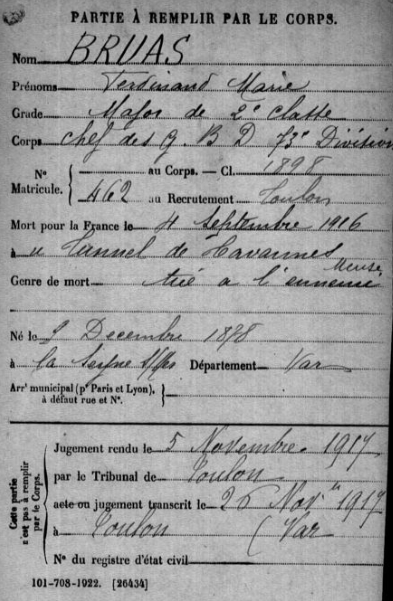 PARTIE À REMPLIR PAR LE CORPS.
Nom BRUAS
Prénoms Ferdinand Marie
Grade Major de 2e classe
Corps Chef des G. B D 73e Division
N° Matricule. { au Corps. — Cl. 1898
462 au Recrutement Toulon
Mort pour la France le 4 Septembre 1916
à u Tunnel de Tavannes Meuse
Genre de mort tué a l'ennemi
Né le 9 Decembre 1878
à la Seyne s/ Département Var
Arrt municipal (pr Paris et Lyon), à défaut rue et N°. }
Cette partie n'est pas à remplir par le Corps.
Jugement rendu le 5 Novembre 1917
par le Tribunal de Toulon
acte ou jugement transcrit le 26 Nov 1917
à Toulon (Var
N° du registre d'état civil
101-708-1922. [26434]